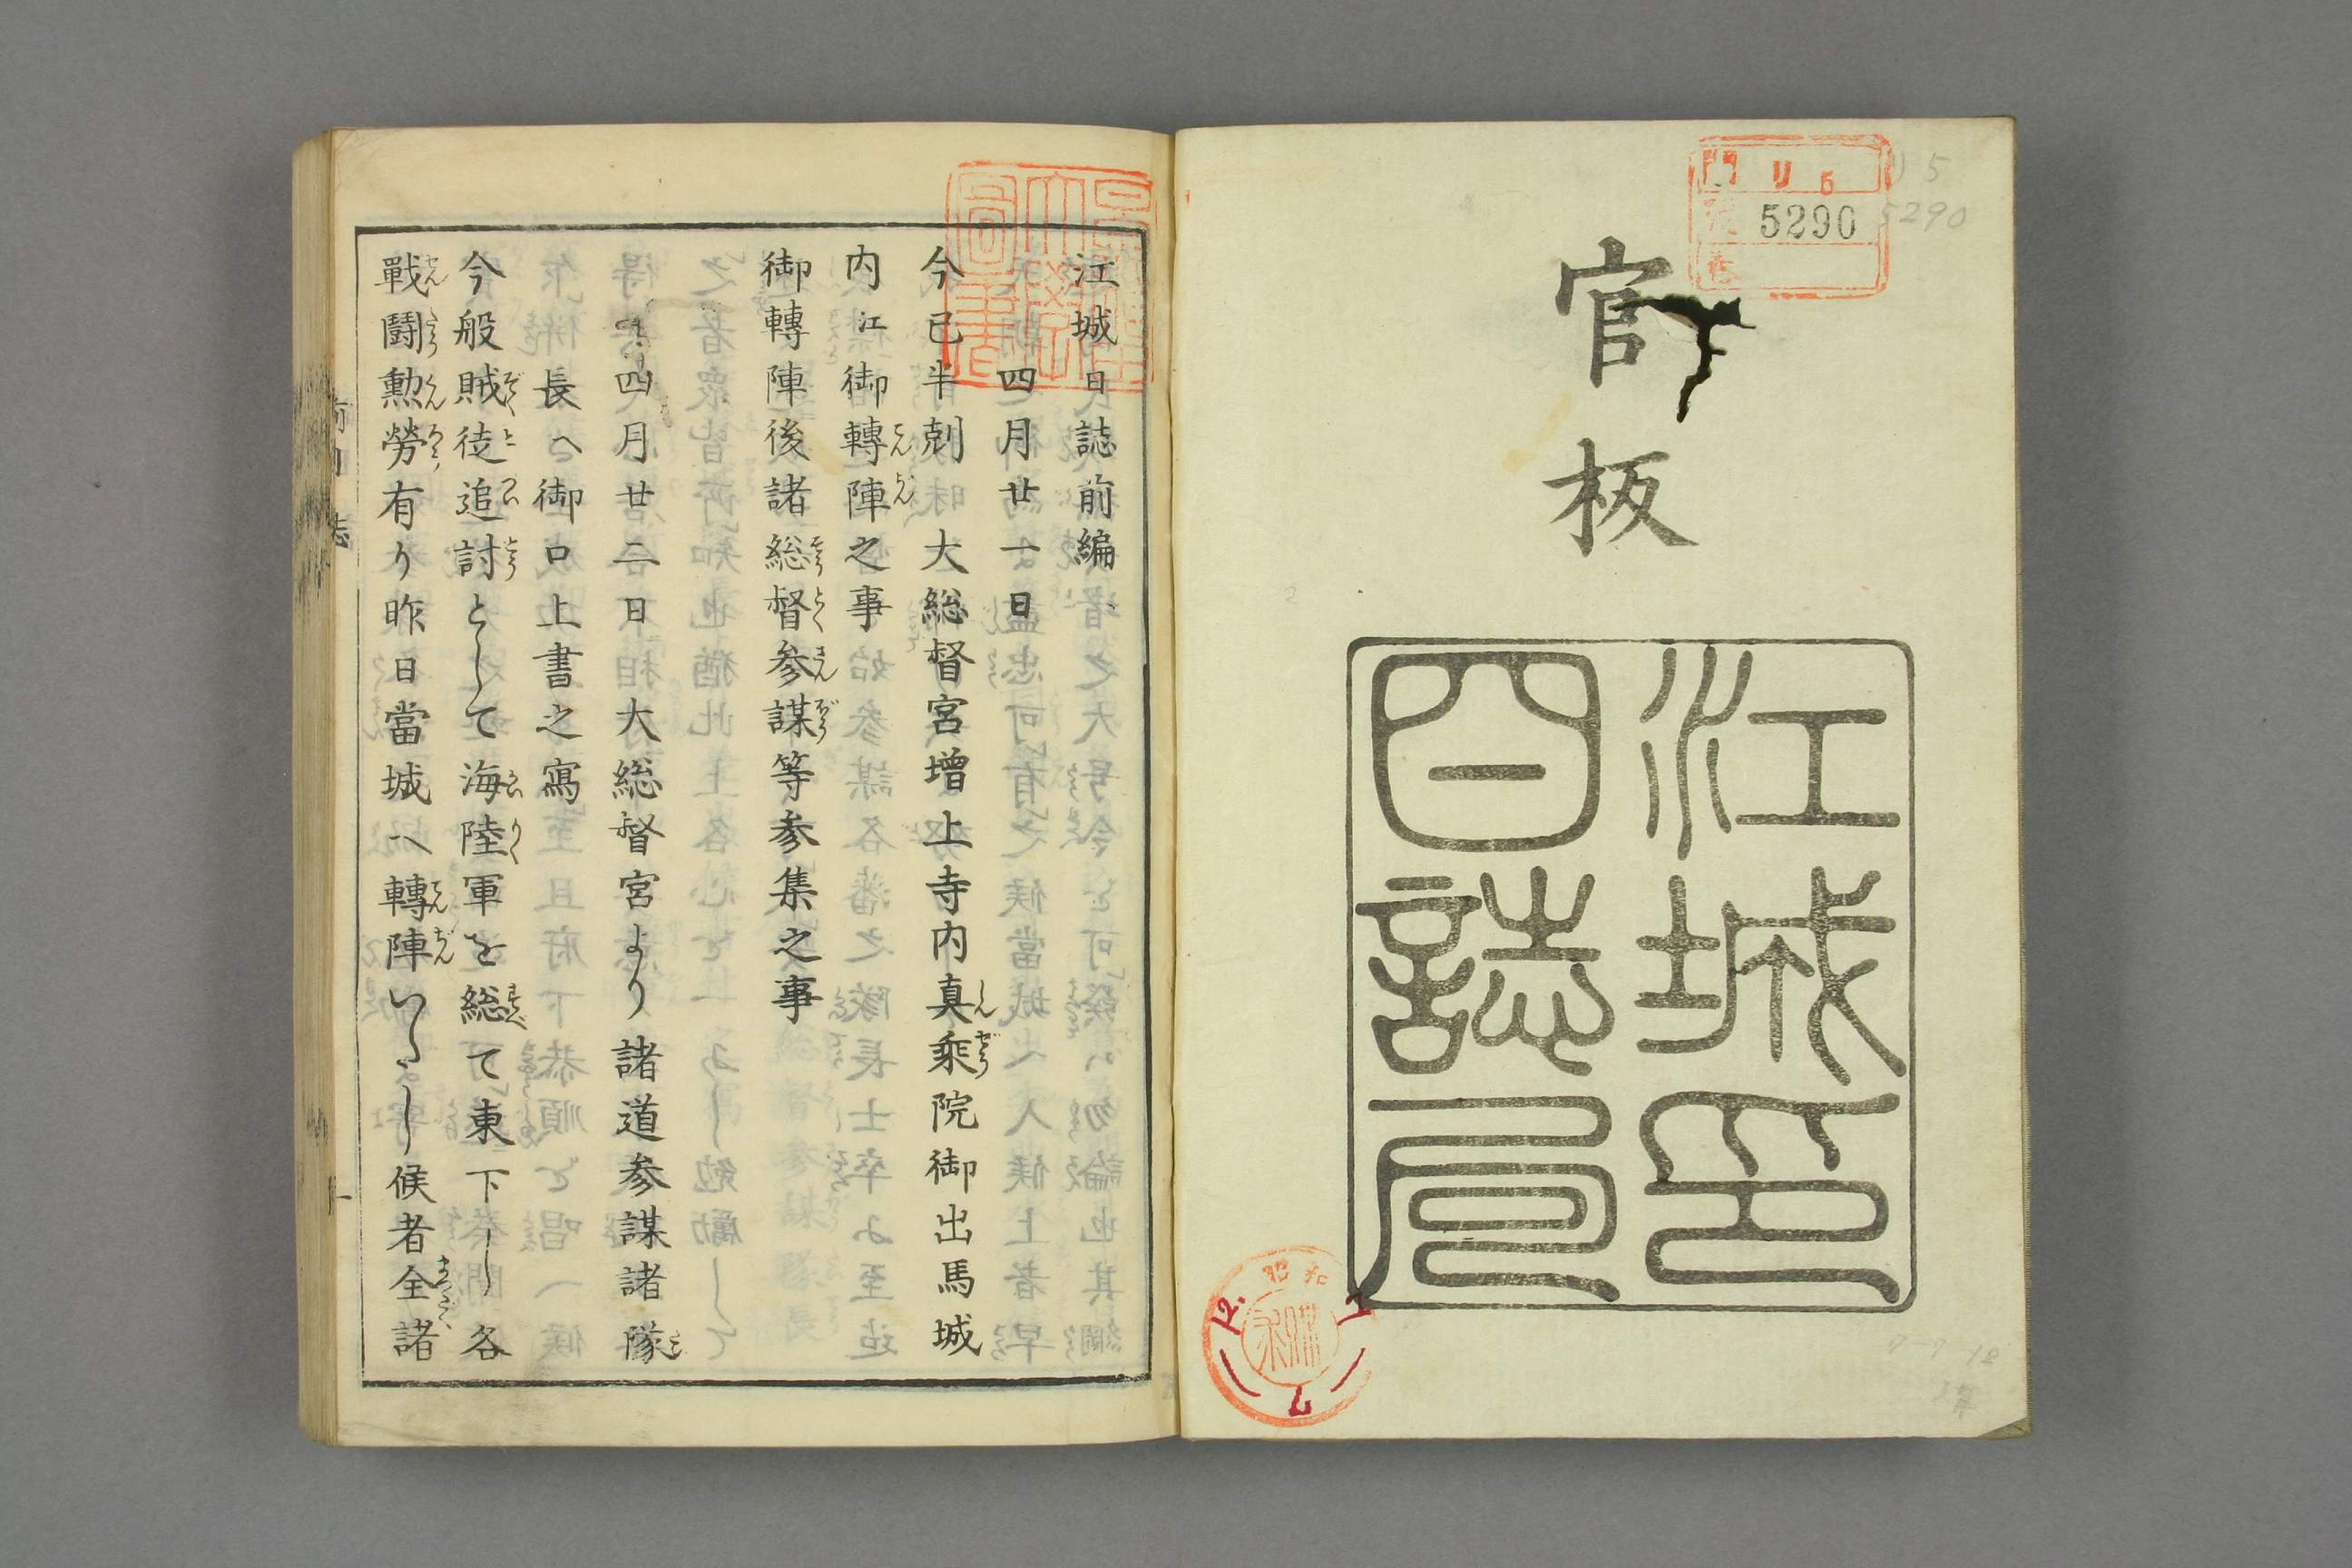 官板
江城日誌局印
門 リ5
号 5290
巻
リ5
5290
昭和
12.
7
江城日誌前編
四月廿一日
今已半剋 大総督宮増上寺内真乗院御出馬城
内江御轉陣之事
御轉陣後諸総督参謀等参集之事
四月廿二日 大総督宮より諸道参謀諸隊
長へ御口上書之寫
今般賊徒追討として海陸軍を総て東下し各
戰鬪勲勞有り昨日當城へ轉陣いたし候者全諸